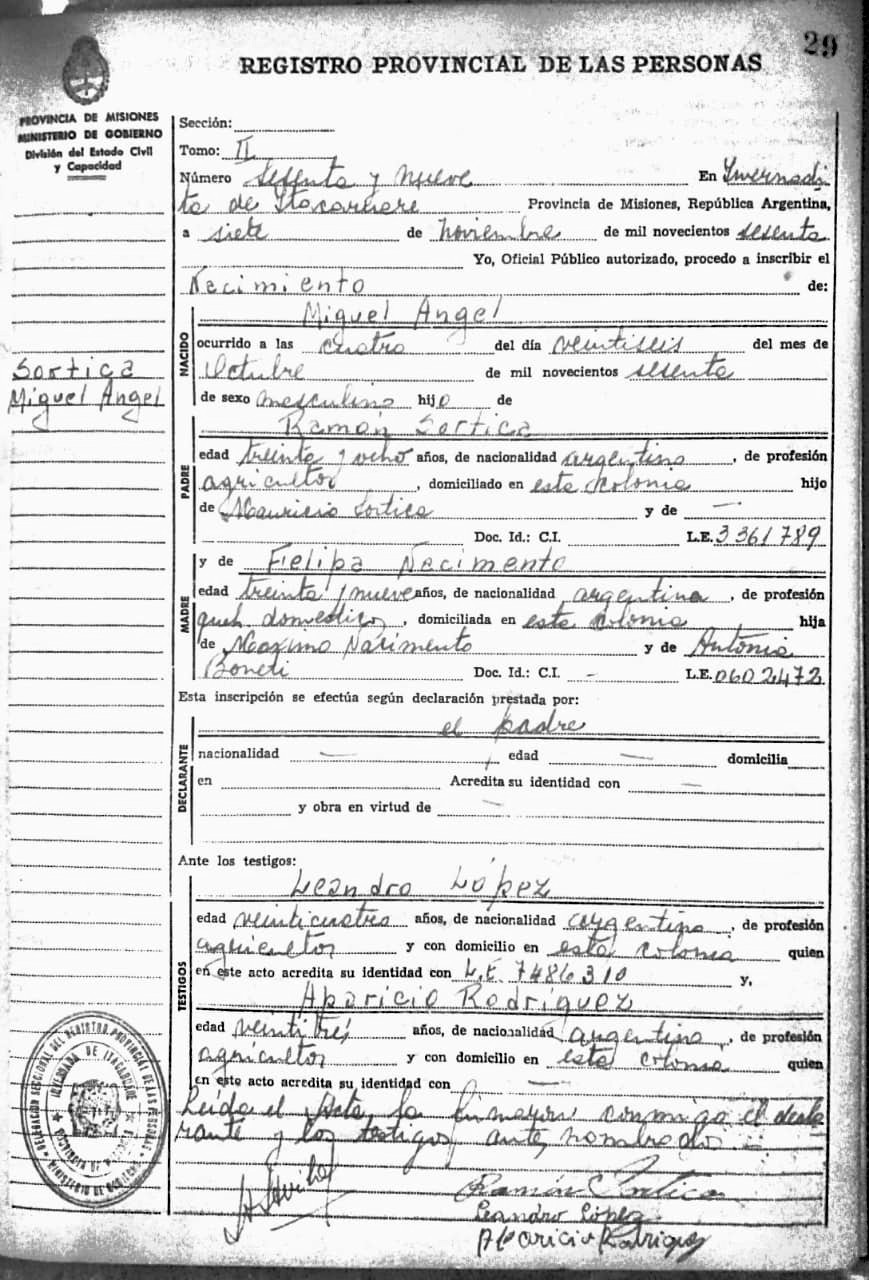 29
REGISTRO PROVINCIAL DE LAS PERSONAS
PROVINCIA DE MISIONES
MINISTERIO DE GOBIERNO
División del Estado Civil
y Capacidad
Sección:
Tomo: II
Número Sesenta y nueve En Invernadi
ta de Itacaruare Provincia de Misiones, República Argentina,
a siete de noviembre de mil novecientos sesenta
Yo, Oficial Público autorizado, procedo a inscribir el
Nacimiento de:
NACIDO
Miguel Angel
ocurrido a las cuatro del día veintiseis del mes de
Octubre de mil novecientos sesenta
de sexo masculino hijo de
Sortica
Miguel Angel
PADRE
Ramón Sortica
edad treinta y ocho años, de nacionalidad argentina, de profesión
agricultor, domiciliado en esta colonia hijo
de Mauricio Sortica y de —
Doc. Id.: C.I. L.E. 3361789
MADRE
y de Felipa Nacimento
edad treinta y nueve años, de nacionalidad argentina, de profesión
queh. domestico, domiciliada en esta colonia hija
de Maximo Nacimento y de Antonia
Doc. Id.: C.I. - L.E. 0602472
Esta inscripción se efectúa según declaración prestada por:
DECLARANTE
el padre
nacionalidad — edad — domicilia
en Acredita su identidad con —
y obra en virtud de —
Ante los testigos:
TESTIGOS
Leandro López
edad veinticuatro años, de nacionalidad argentina, de profesión
agricultor y con domicilio en esta colonia quien
en este acto acredita su identidad con L.E. 7486310 y,
Aparicio Rodríguez
edad veintitrés años, de nacionalidad argentina, de profesión
agricultor y con domicilio en esta colonia quien
en este acto acredita su identidad con —
Leida el Acta, la firmaron conmigo el decla
rante y los testigos ante nombrados.
DELEGACION SECCIONAL DEL REGISTRO PROVINCIAL DE LAS PERSONAS
MINISTERIO DE GOBIERNO
PROVINCIA DE MISIONES
Ramón Sortica
Leandro López
Aparicio Rodriguez